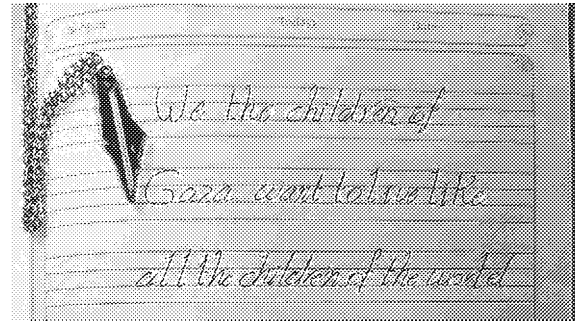 We the children of
Gaza want to live like
all the children of the world